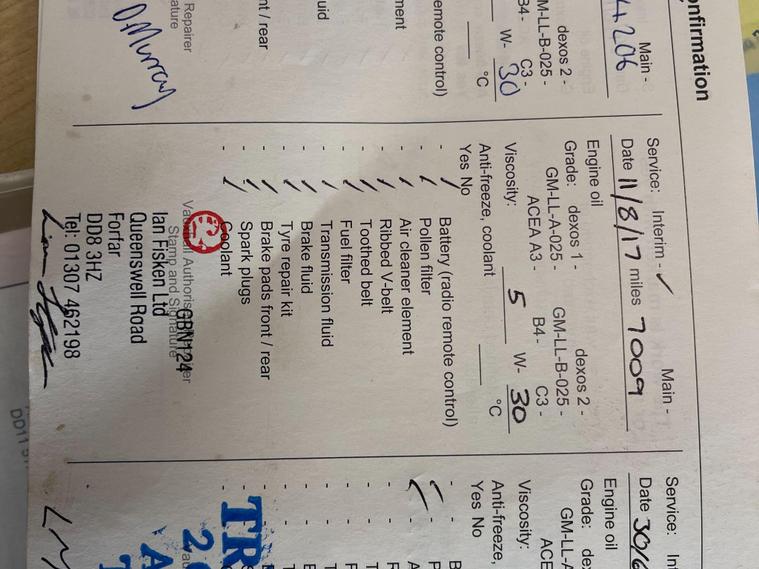 onfirmation
Main -
4206
dexos 2 -
M-LL-B-025 -
B4- C3 -
W- 30
°C
emote control)
ment
uid
nt / rear
Repairer
ature
D.Murray
Service: Interim - ✓ Main -
Date 11/8/17 miles 7009
Engine oil
Grade: dexos 1 - dexos 2 -
GM-LL-A-025 - GM-LL-B-025 -
ACEA A3 - B4- C3 -
Viscosity: 5 W- 30
Anti-freeze, coolant °C
Yes No
- ✓ Battery (radio remote control)
- ✓ Pollen filter
- ✓ Air cleaner element
- ✓ Ribbed V-belt
- ✓ Toothed belt
- ✓ Fuel filter
- ✓ Transmission fluid
- ✓ Brake fluid
- ✓ Tyre repair kit
- ✓ Brake pads front / rear
- ✓ Spark plugs
- ✓ Coolant
Stamp and Signature
GBN124
Ian Fisken Ltd
Queenswell Road
Forfar
DD8 3HZ
Tel: 01307 462198
Service: Int
Date 30/6
Engine oil
Grade: de
GM-LL-A
ACE
Viscosity:
Anti-freeze,
Yes No
TR
2
A
DD11